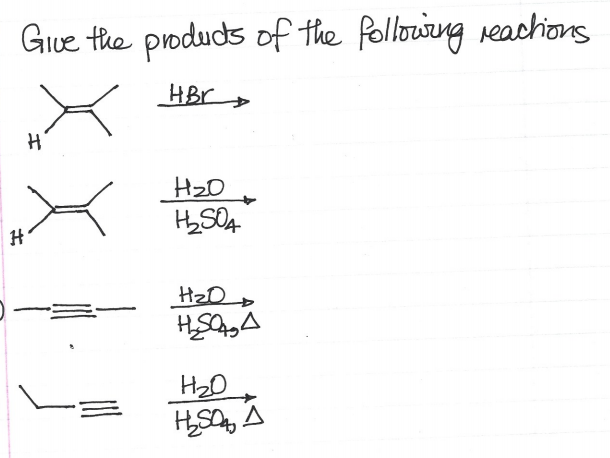 Give the products of the following reactions
HBr
H
H2O
H2SO4
H
H2O
H2SO4, Δ
H2O
H2SO4, Δ